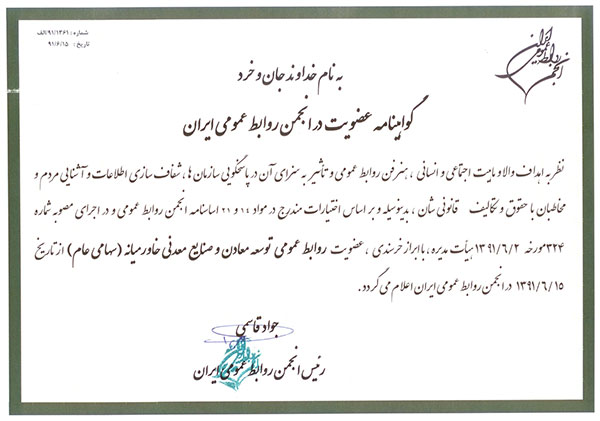 شماره : ۹۱/۱۳۶۱/الف
تاریخ : ۹۱/۶/۱۵
انجمن روابط عمومی ایران
به نام خداوند جان و خرد
گواهینامه عضویت در انجمن روابط عمومی ایران
نظر به اهداف والا و ماهیت اجتماعی و انسانی ، هنر فن روابط عمومی و تأثیر به سزای آن در پاسخگویی سازمان ها ، شفاف سازی اطلاعات و آشنایی مردم و
مخاطبان با حقوق و تکالیف قانونی شان ، بدینوسیله و بر اساس اختیارات مندرج در مواد ۱۴ و ۲۱ اساسنامه انجمن روابط عمومی و در اجرای مصوبه شماره
۳۲۴ مورخه ۱۳۹۱/۶/۲ هیأت مدیره ، با ابراز خرسندی ، عضویت روابط عمومی توسعه معادن و صنایع معدنی خاورمیانه (سهامی عام) از تاریخ
۱۳۹۱/۶/۱۵ در انجمن روابط عمومی ایران اعلام می گردد .
جواد قاسمی
رئیس انجمن روابط عمومی ایران